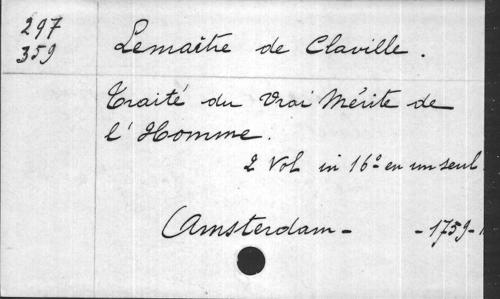 297
359
Lemaître de Claville.
Traité du Vrai Mérite de
l'Homme.
2 Vol in 16° en un seul
Amsterdam - - 1759 -